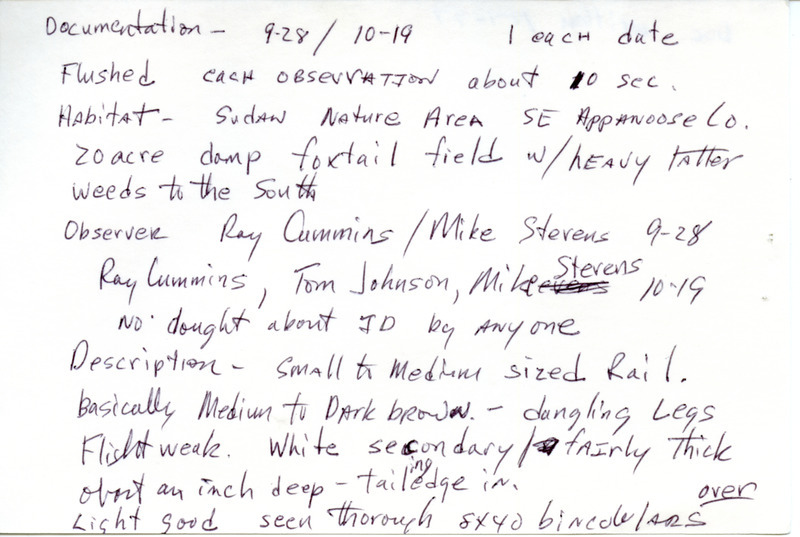 Documentation - 9-28 / 10-19 1 each date
Flushed each observation about 10 sec.
Habitat - Sudan Nature Area SE Appanoose Co.
20 acre damp foxtail field w/ heavy tatter
weeds to the South
Observer Ray Cummins / Mike Stevens 9-28
Ray Cummins, Tom Johnson, Mike Stevens 10-19
No dought about ID by anyone
Description - Small to Medium sized Rail.
Basically Medium to Dark brown. - dangling Legs
Flight weak. White secondary / fairly thick
about an inch deep - tailingedge in.
Light good seen thorough 8x40 binculars
over